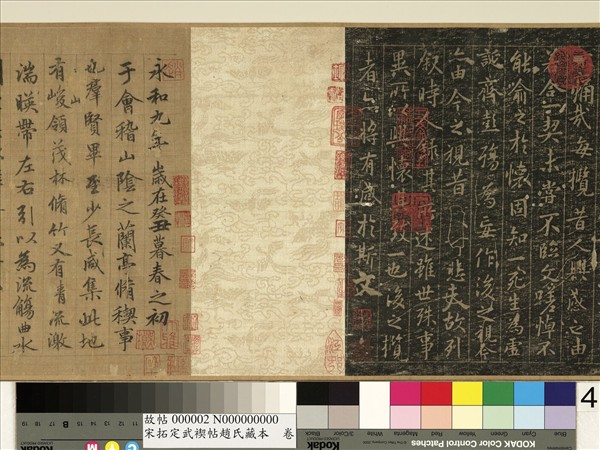 痛哉每攬昔人興感之由
若合一契未嘗不臨文嗟悼不
能喻之於懷固知一死生為虛
誕齊彭殤為妄作後之視今
亦由今之視昔悲夫故列
敘時人錄其所述雖世殊事
異所以興懷其致一也後之攬
者亦將有感於斯文
永和九年歲在癸丑暮春之初
于會稽山陰之蘭亭脩稧事
也羣賢畢至少長咸集此地
有峻領茂林脩竹又有清流激
山
湍暎帶左右引以為流觴曲水
故帖 000002 N000000000
宋拓定武禊帖趙氏藏本 卷
4
Black 3/Color White Magenta Red Yellow Green Cyan Blue
KODAK Color Control Patches
Kodak
19 18 17 16 B 14 13 12 11
Kodak
M Y C